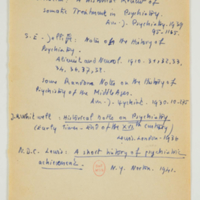 Somatic Treatment in Psychiatry.
Am. J. Psychiatry, 1939
95.
S.E. Jelliffe: Notes on the History of
Psychiatry.
Alienist and Neurol. 1910.
Some Random Notes on the History of
Psychiatry of the Middle Ages.
Am. J. Psychiat. 1930.
J.R. Whitwell: Historical Notes on Psychiatry
(early times - end of the 16th century)
London. 1936
N.D.C. Lewis: A short history of psychiatric
achievement.
N.Y. Norton. 1941.